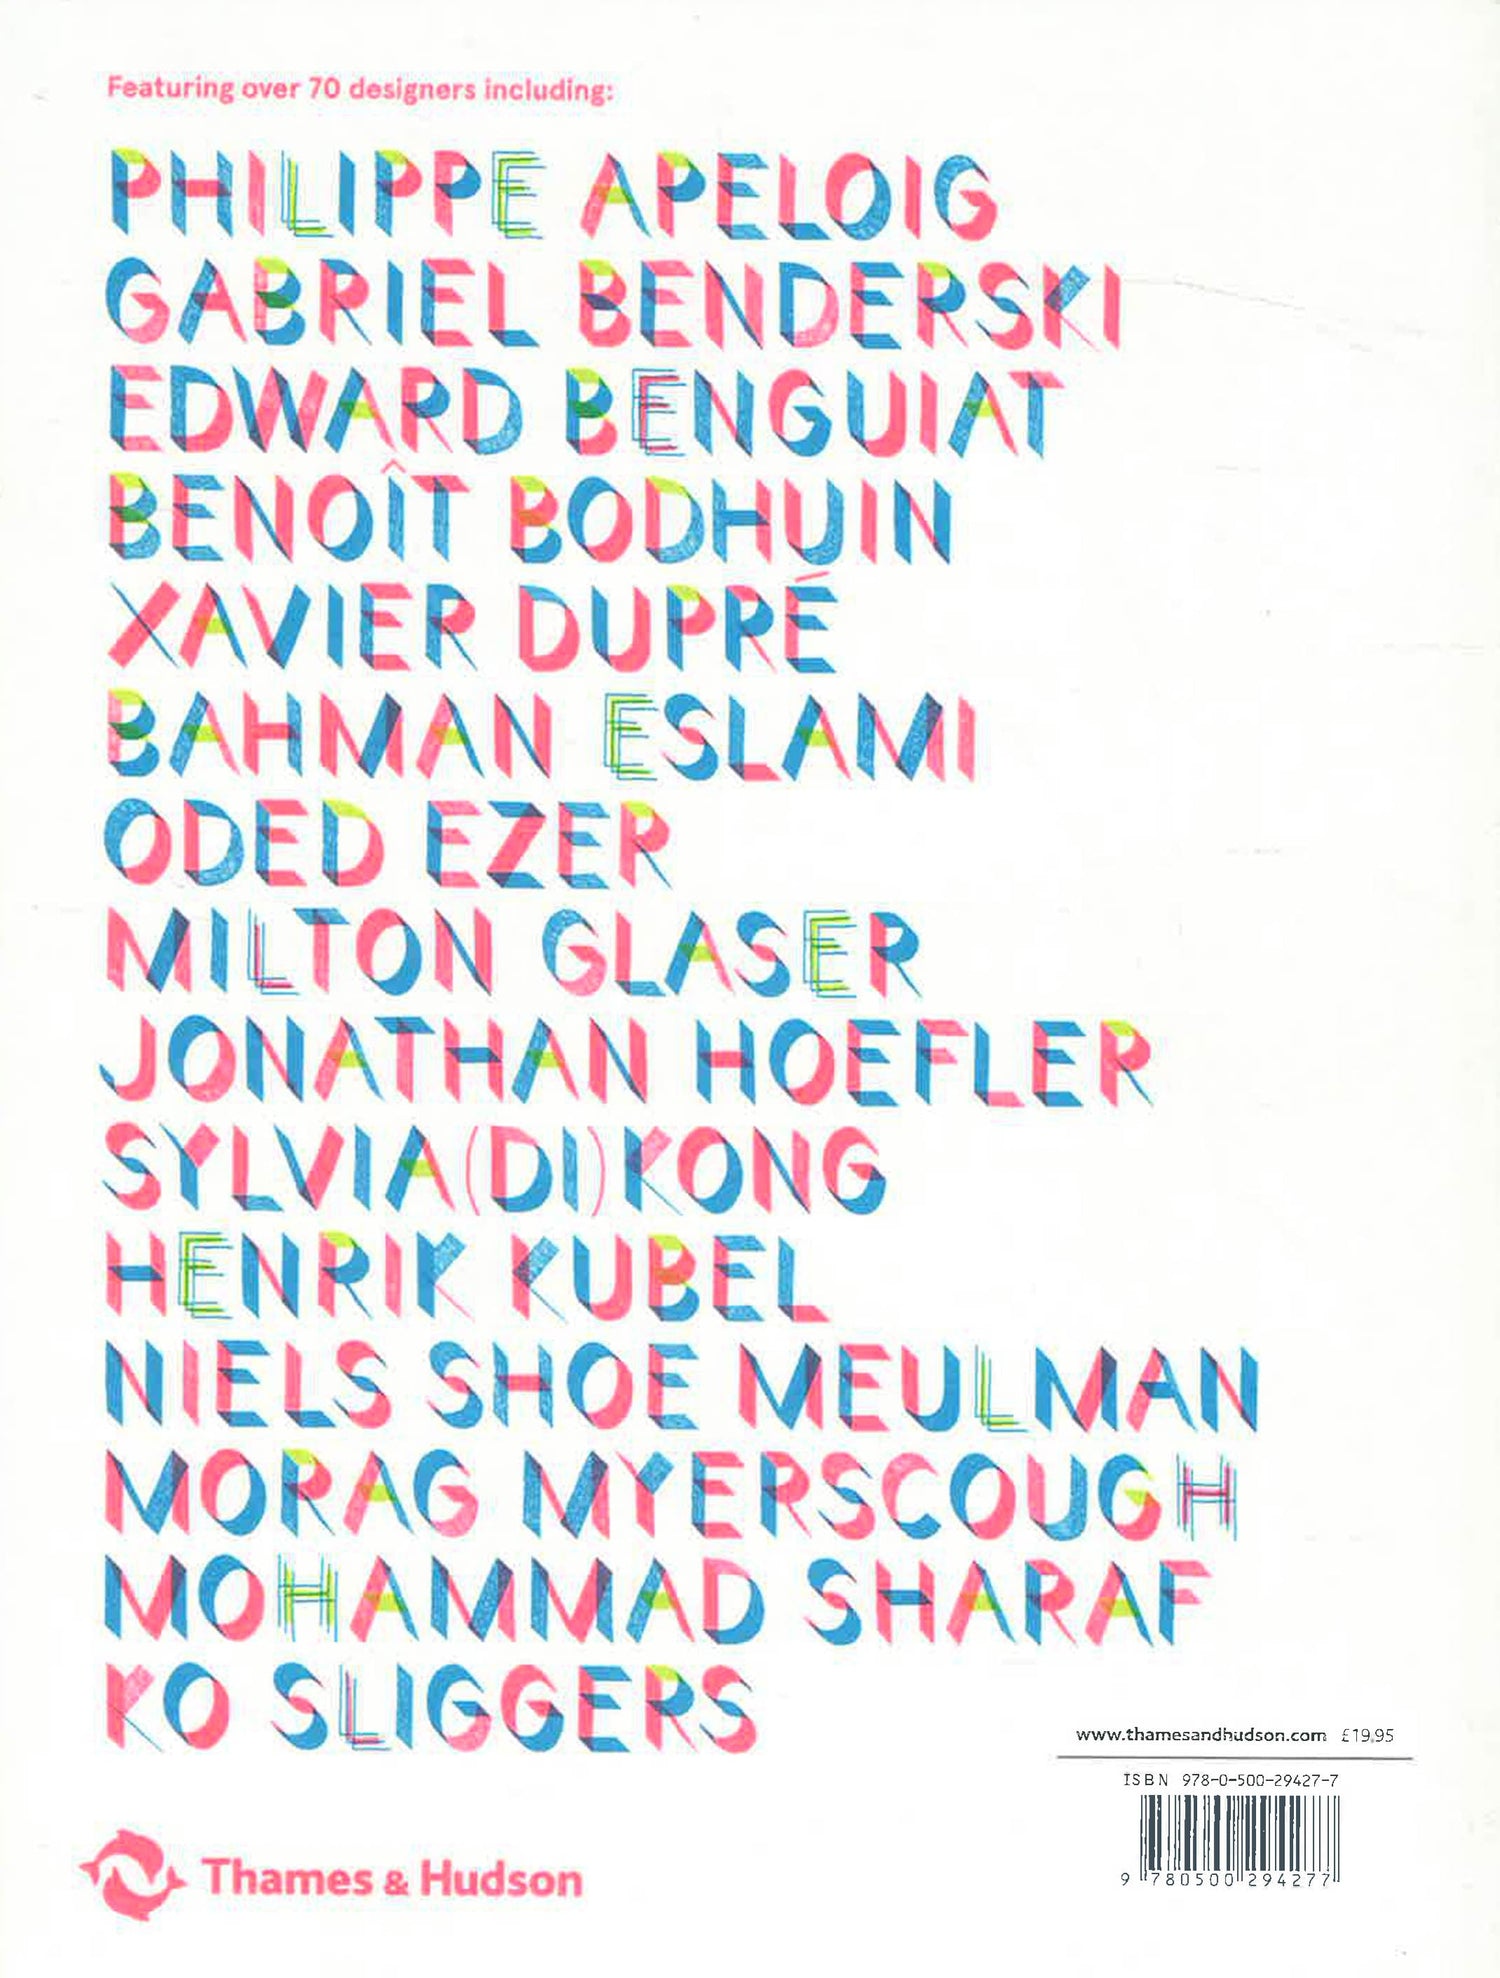 Featuring over 70 designers including:
PHILIPPE APELOIG
GABRIEL BENDERSKI
EDWARD BENGUIAT
BENOÎT BODHUIN
XAVIER DUPRÉ
BAHMAN ESLAMI
ODED EZER
MILTON GLASER
JONATHAN HOEFLER
SYLVIA(DI)KONG
HENRIK KUBEL
NIELS SHOE MEULMAN
MORAG MYERSCOUGH
MOHAMMAD SHARAF
KO SLIGGERS
www.thamesandhudson.com £19.95
ISBN 978-0-500-29427-7
9 780500 294277
Thames & Hudson